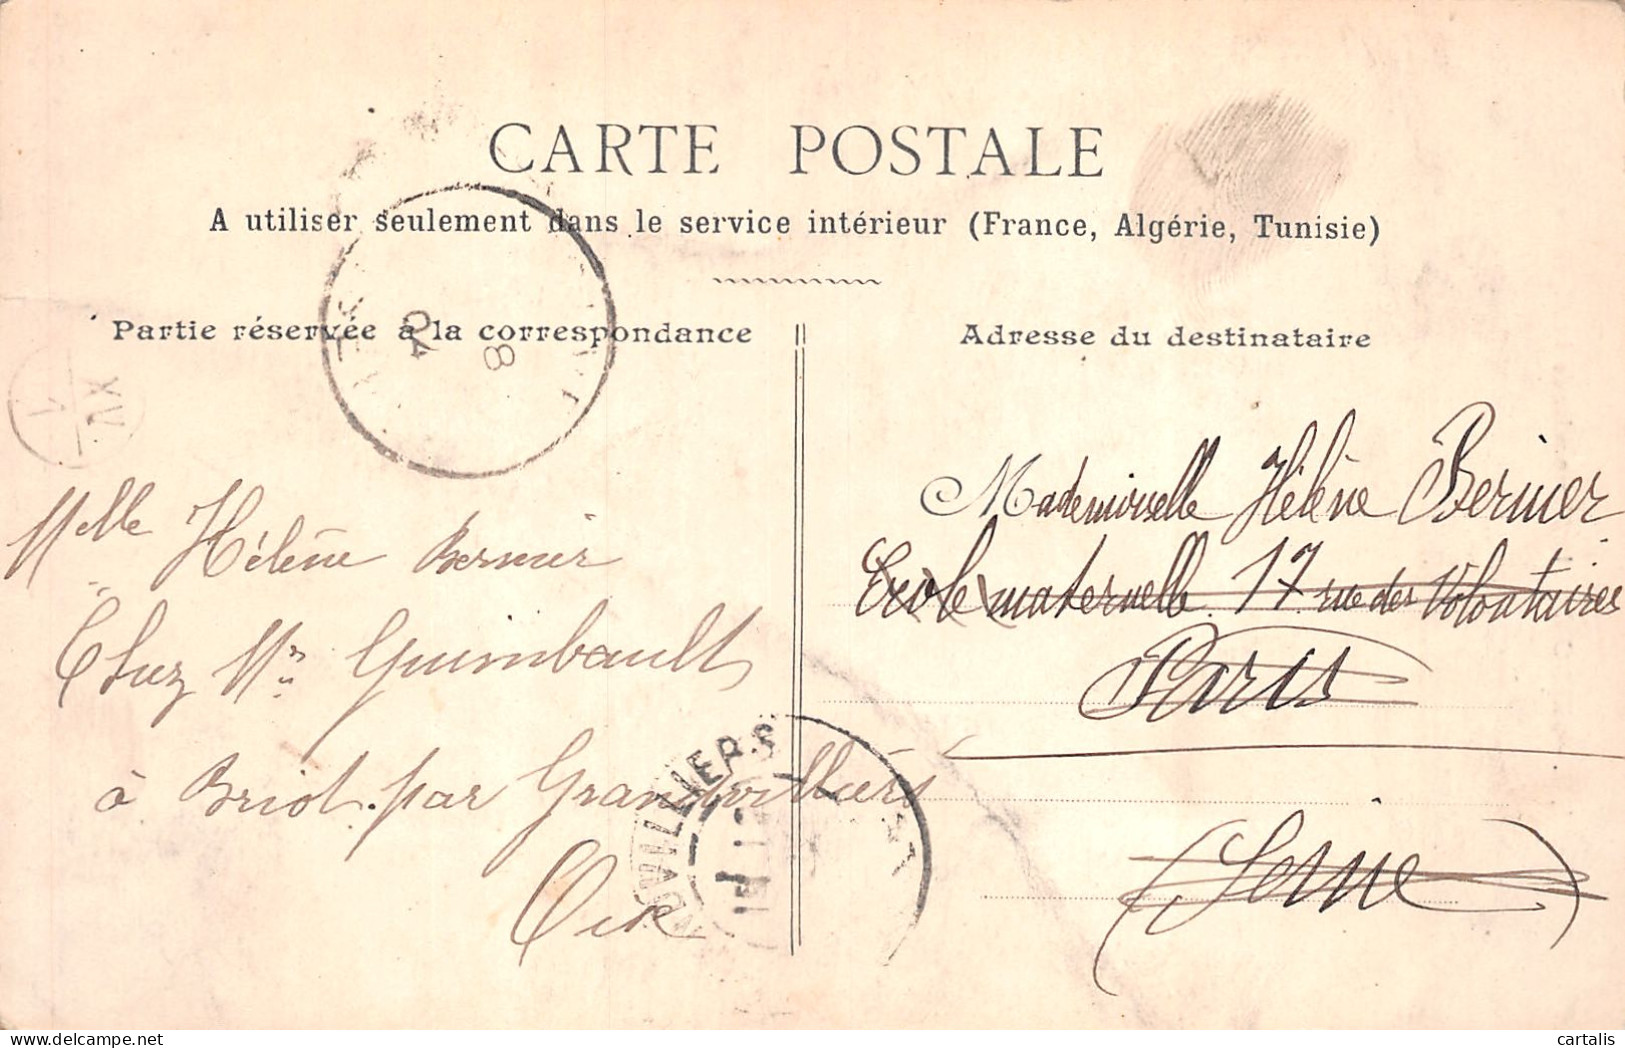 CARTE POSTALE
A utiliser seulement dans le service intérieur (France, Algérie, Tunisie)
Partie réservée à la correspondance
Adresse du destinataire
04
8
XV
1
Mademoiselle Hélène Bernier
Ecole maternelle 17 rue des Volontaires
Paris
(Seine)
Melle Hélène Bernier
Chez Mr Guimbault
à Briot par Grandvilliers
Oise
VILLIERS
delcampe.net
cartalis